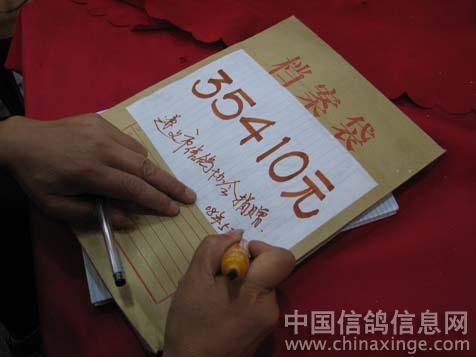 档案袋
35410元
遵义市信鸽协会捐赠
08年5
中国信鸽信息网
www.chinaxinge.com